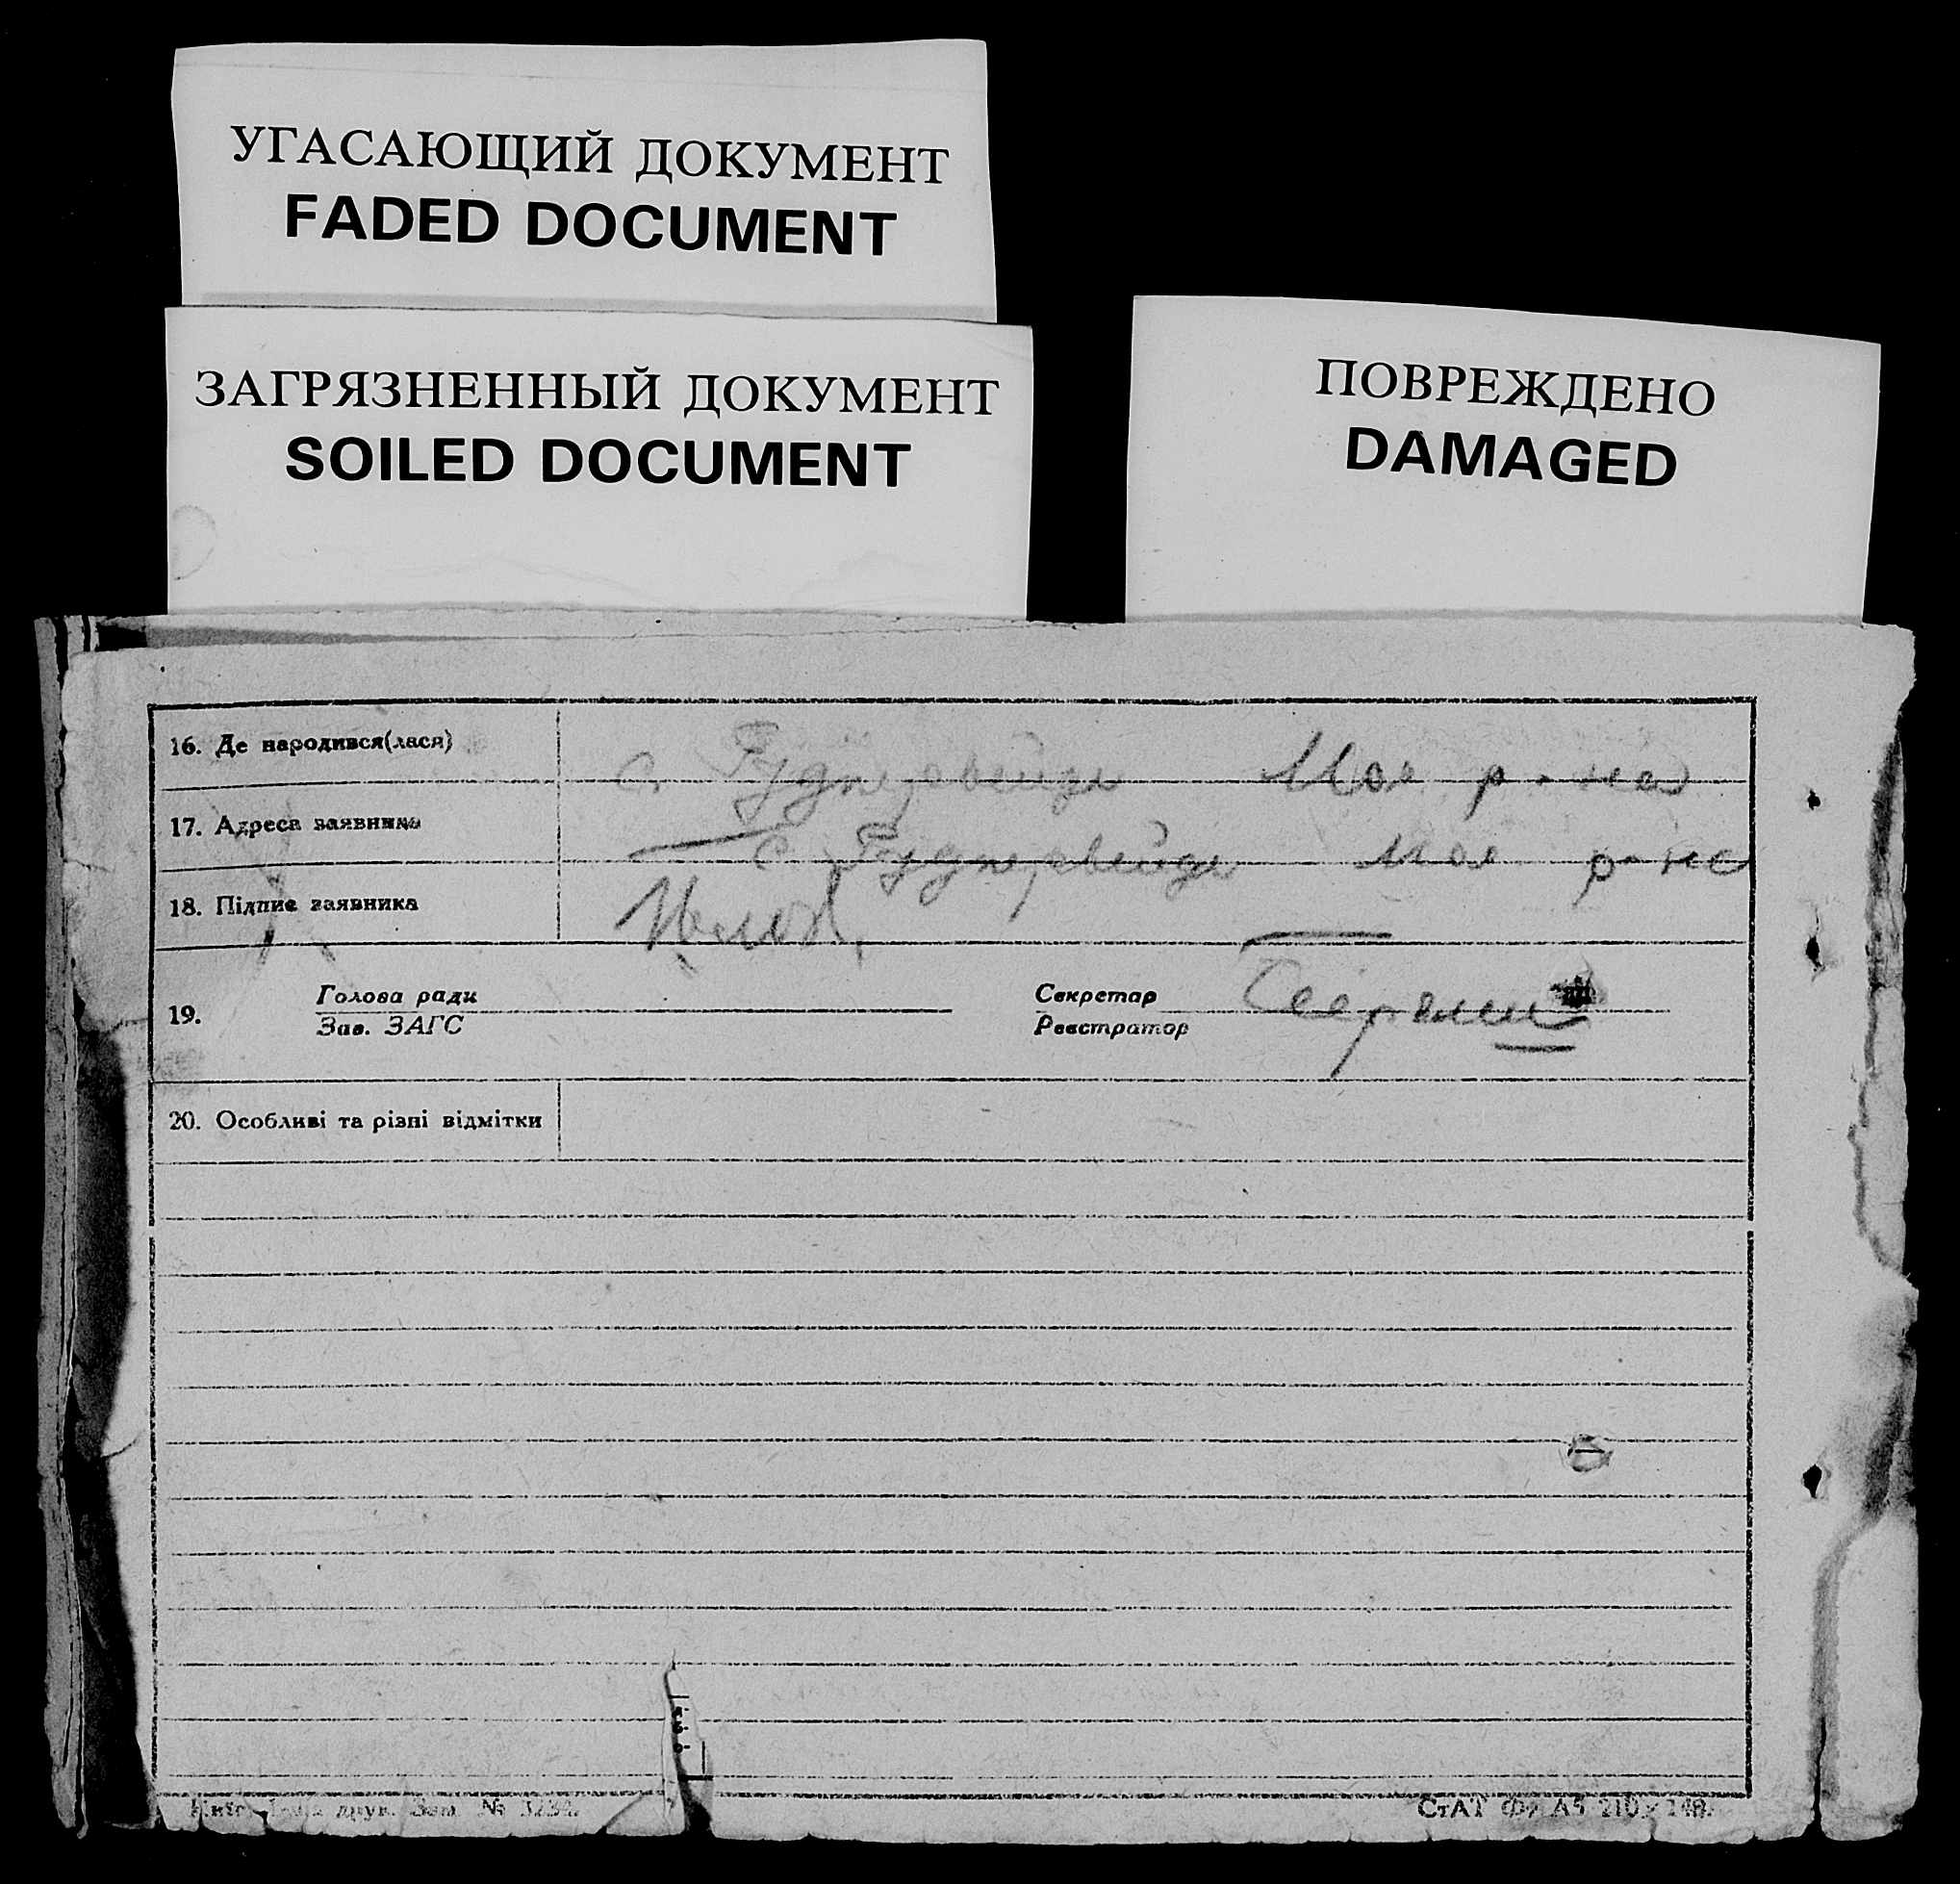 УГАСАЮЩИЙ ДОКУМЕНТ
FADED DOCUMENT
ЗАГРЯЗНЕННЫЙ ДОКУМЕНТ
SOILED DOCUMENT
ПОВРЕЖДЕНО
DAMAGED
16. Де народився(лася)
с. Мол р-на
17. Адреса заявника
с. Мол р-на
18. Підпис заявника
19. Голова ради
Зав. ЗАГС
Секретар
Реєстратор
20. Особливі та різні відмітки
друк. Зам. №
СтАТ Ф. А5 210×148.